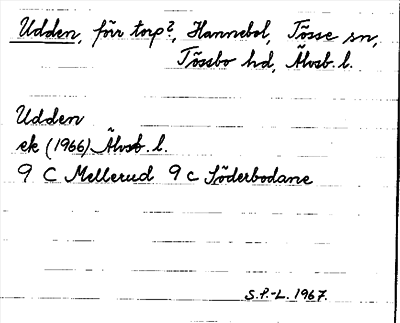 Udden, förr torp?, Hannebol, Tösse sn,
Tössbo hd, Älvsb. l.
Udden
ek (1966) Älvsb. l.
9 C Mellerud 9 c Söderbodane
S.P.-L. 1967.